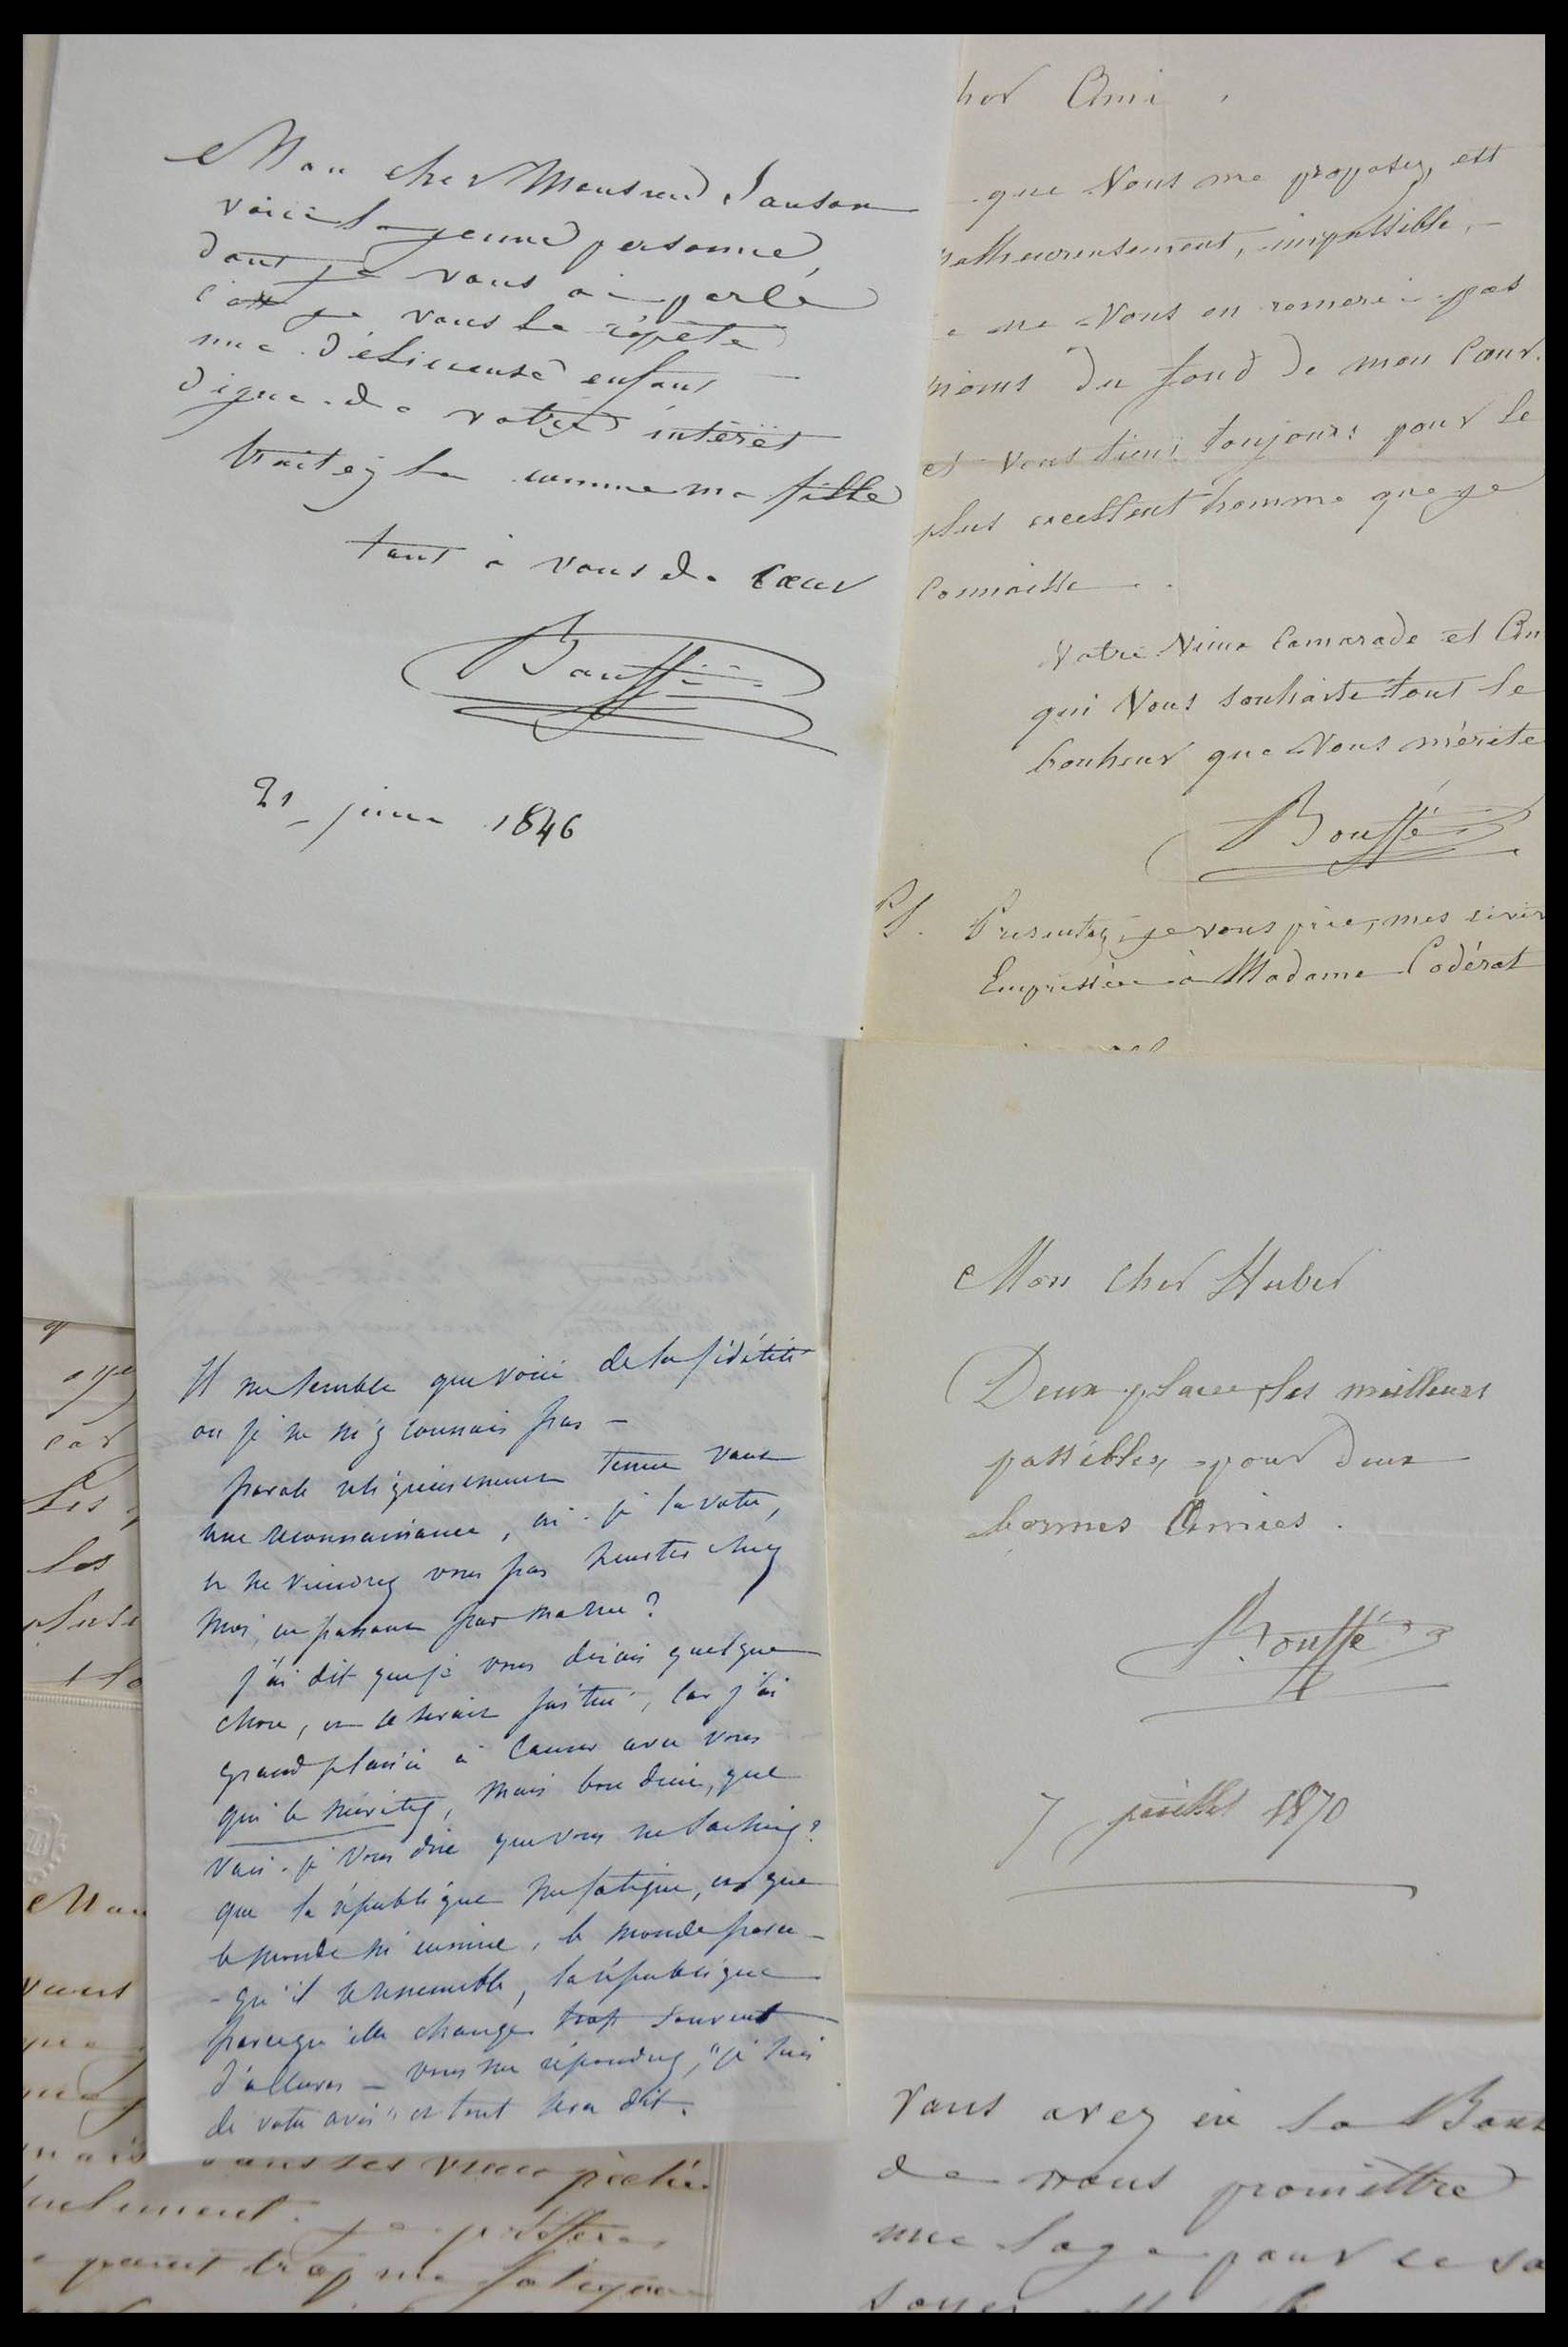 Mon cher Monsieur Sanson
voici la jeune personne
dont je vous ai parlé
c'est je vous le répète
une délicieuse enfant
digne de votre intérêt
traitez la comme ma fille
tout à vous de cœur
Bouffé
21 juin 1846
her Ami,
que Vous me proposez, est
malheureusement, impossible,
ne Vous en remercie pas
moins du fond de mon Cœur.
et vous tiens toujours pour le
plus excellent homme que je
Connaisse.
Votre Vieux Camarade et Am
qui Vous souhaite tout le
bonheur que Vous mérite
Bouffé
PS. Presentez, je vous prie, mes
Empressée à Madame Codérat
Il me semble que voici de la fidélité
ou je ne m'y connais pas –
parole religieusement tenue vaut
une reconnaissance, ai-je la votre,
et ne viendrez vous pas chez
moi, en passant par ma rue?
J'ai dit que je vous dirais quelque
chose, et ce serait justice, car j'ai
grand plaisir à causer avec vous
qui le méritez, mais bon dieu, que
vais-je vous dire que vous ne sachiez?
que la république me fatigue, et que
le monde m'ennuie, le monde parce
- qu'il se ressemble, la république
parcequ'elle change trop souvent
d'allures – vous me répondrez, "je suis
de votre avis" et tout sera dit.
Mon cher Huber
Deux places, les meilleures
possibles, pour deux
bonnes Amies.
Bouffé
7 juillet 1870
car
Les
les
plus
Mon
vieux péchés
je préfère
point trop me fatiguer
Vous avez eu la Bont
de nous promettre
une loge pour ce so